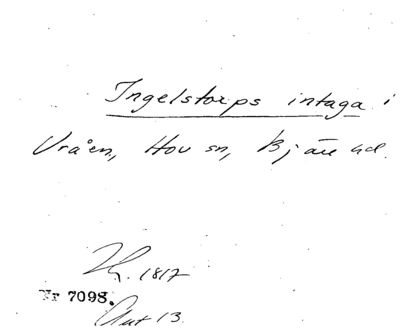 Ingelstorps intaga i
Vråen, Hov sn, Bjäre hd.
Th. 1817
Nr 7098.
Aut 13.